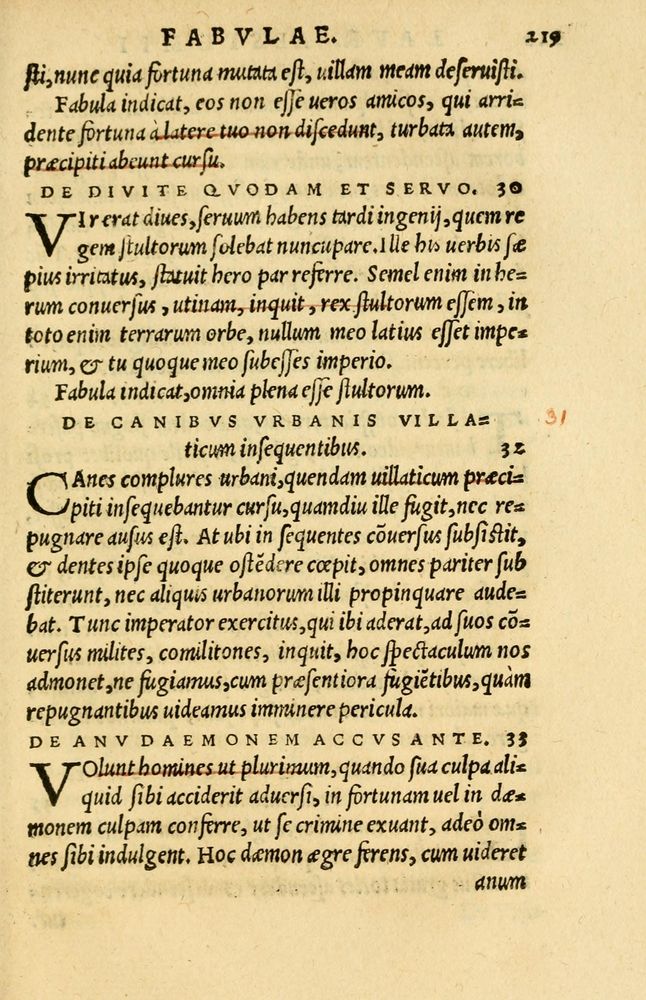 FABVLAE. 219
sti, nunc quia fortuna mutata est, uillam meam deseruisti.
Fabula indicat, eos non esse ueros amicos, qui arri=
dente fortuna à latere tuo non discedunt, turbata autem,
præcipiti abeunt cursu.
DE DIVITE QVODAM ET SERVO. 30
VIr erat diues, seruum habens tardi ingenij, quem re
gem stultorum solebat nuncupare. Ille his uerbis sæ
pius irritatus, statuit hero par referre. Semel enim in he=
rum conuersus, utinam, inquit, rex stultorum essem, in
toto enim terrarum orbe, nullum meo latius esset impe=
rium, & tu quoque meo subesses imperio.
Fabula indicat, omnia plena esse stultorum.
DE CANIBVS VRBANIS VILLA= 31
ticum insequentibus. 32
CAnes complures urbani, quendam uillaticum præci=
piti insequebantur cursu, quamdiu ille fugit, nec re=
pugnare ausus est. At ubi in sequentes cōuersus subsistit,
& dentes ipse quoque ostēdere cœpit, omnes pariter sub
stiterunt, nec aliquis urbanorum illi propinquare aude=
bat. Tunc imperator exercitus, qui ibi aderat, ad suos cō=
uersus milites, comilitones, inquit, hoc spectaculum nos
admonet, ne fugiamus, cum præsentiora fugiētibus, quàm
repugnantibus uideamus imminere pericula.
DE ANV DAEMONEM ACCVSANTE. 33
VOlunt homines ut plurimum, quando sua culpa ali=
quid sibi acciderit aduersi, in fortunam uel in dæ=
monem culpam conferre, ut se crimine exuant, adeò om=
nes sibi indulgent. Hoc dæmon ægre ferens, cum uideret
anum